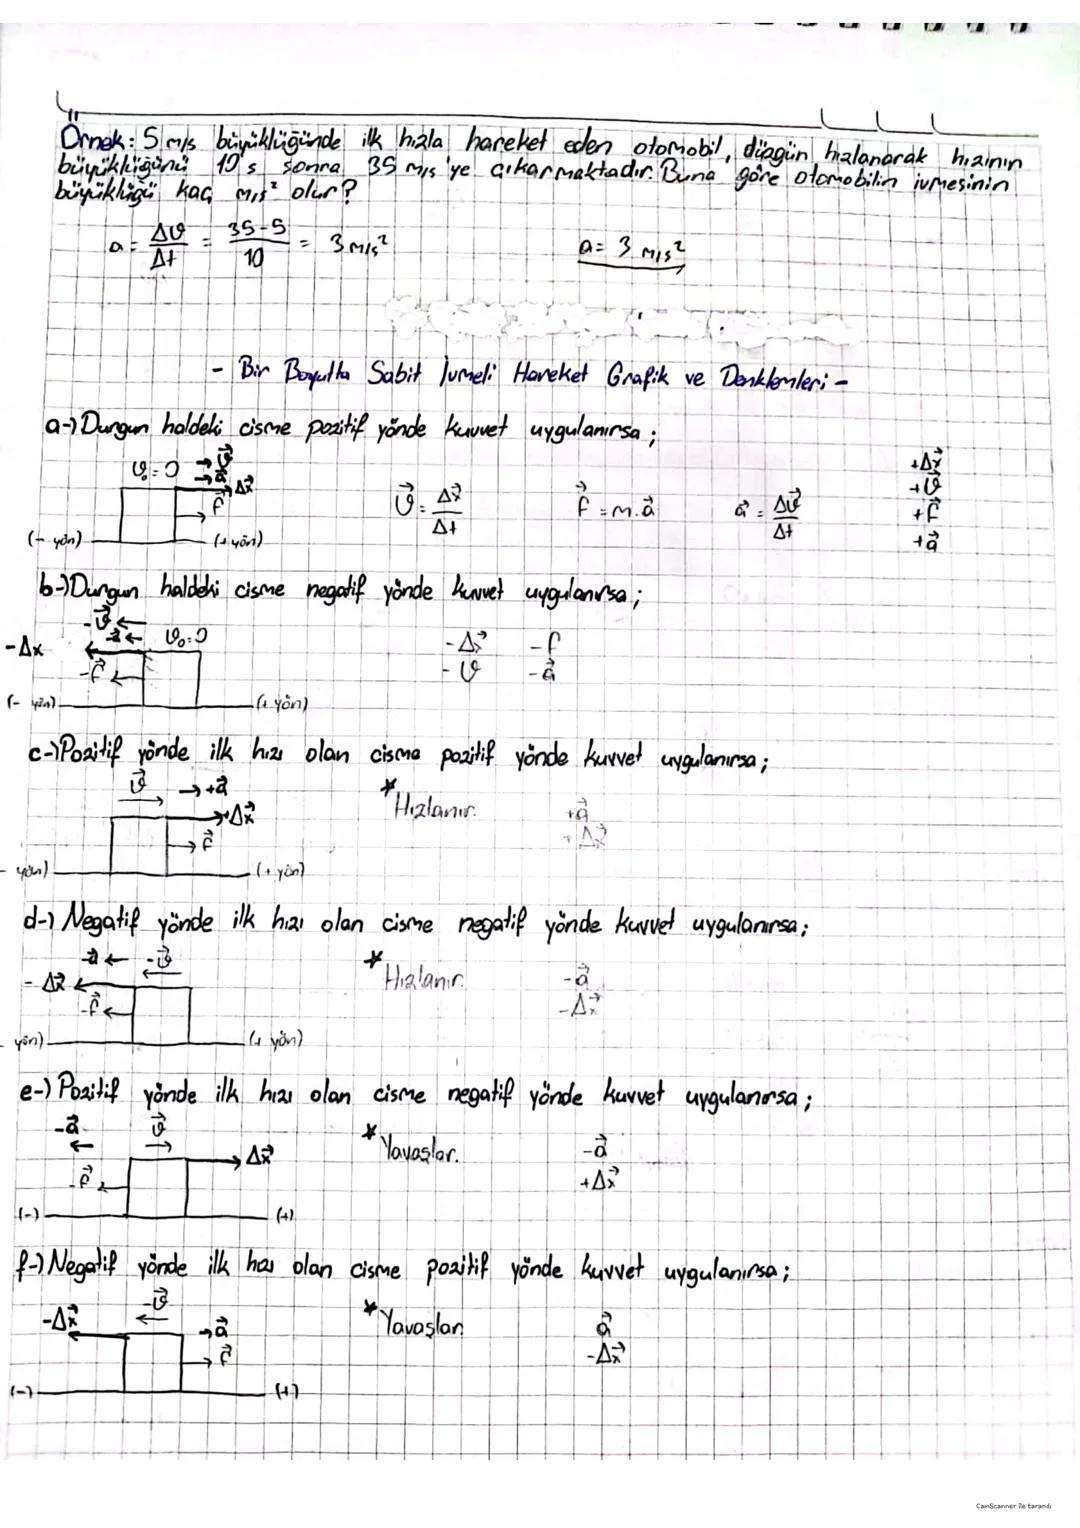 Örnek: 5 m/s büyüklüğünde ilk hızla hareket eden otomobil, düzgün hızlanarak hızının
büyüklüğünü 10 s sonra 35 m/s 'ye çıkarmaktadır. Buna göre otomobilin ivmesinin
büyüklüğü kaç m/s² olur?
a = Δϑ/Δt = 35-5/10 = 3 m/s² a = 3 m/s²
- Bir Boyutta Sabit İvmeli Hareket Grafik ve Denklemleri -
a-) Durgun haldeki cisme pozitif yönde kuvvet uygulanırsa ;
ϑ₀=0 → ϑ⃗ → a⃗ Δx⃗ F⃗
ϑ⃗ = Δx⃗/Δt F⃗ = m.a⃗ a⃗ = Δϑ⃗/Δt
+Δx⃗
+ϑ⃗
+F⃗
+a⃗
(- yön) (+ yön)
b-) Durgun haldeki cisme negatif yönde kuvvet uygulanırsa ;
-ϑ⃗ ←
-a⃗ ← ϑ₀=0
-Δx -Δx⃗ -F
-F⃗ -ϑ -a⃗
(- yön) (+ yön)
c-) Pozitif yönde ilk hızı olan cisme pozitif yönde kuvvet uygulanırsa ;
ϑ⃗ → +a⃗ * Hızlanır. +a⃗
+Δx⃗ +Δx⃗
→ F⃗
yön) (+ yön)
d-) Negatif yönde ilk hızı olan cisme negatif yönde kuvvet uygulanırsa ;
-a⃗ ← -ϑ⃗ * Hızlanır. -a⃗
-Δx⃗ -Δx⃗
-F⃗ ←
yön) (+ yön)
e-) Pozitif yönde ilk hızı olan cisme negatif yönde kuvvet uygulanırsa ;
-a⃗ ϑ⃗ * Yavaşlar. -a⃗
Δx⃗ +Δx⃗
-F⃗
(-) (+)
f-) Negatif yönde ilk hızı olan cisme pozitif yönde kuvvet uygulanırsa ;
-Δx⃗ -ϑ⃗ * Yavaşlar. a⃗
→ a⃗ -Δx⃗
→ F⃗
(-) (+)
CamScanner ile tarandı